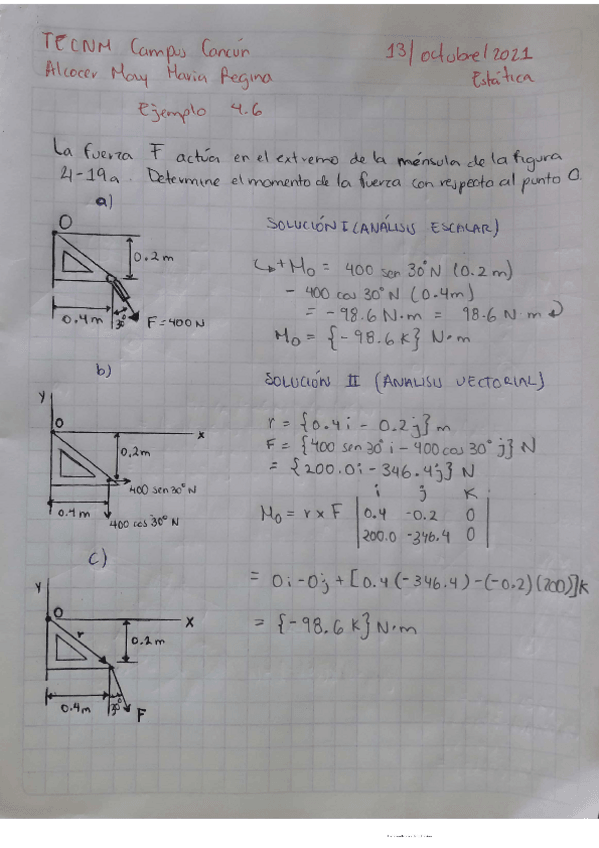 TECNM Campus Cancún
13/octubre/2021
Alcocer May Maria Regina
Estática
Ejemplo 4.6
La fuerza F actúa en el extremo de la ménsula de la figura
4-19a. Determine el momento de la fuerza con respecto al punto O.
a)
O
0.2 m
0.4 m
30°
F = 400 N
SOLUCIÓN I (ANÁLISIS ESCALAR)
↳+ Mo = 400 sen 30° N (0.2 m)
- 400 cos 30° N (0.4m)
= -98.6 N·m = 98.6 N·m ↲
Mo = {-98.6 K} N·m
b)
y
O
x
0.2m
400 sen 30° N
0.4 m
400 cos 30° N
SOLUCIÓN II (ANALISIS VECTORIAL)
r = {0.4i - 0.2j} m
F = {400 sen 30° i - 400 cos 30° j} N
= {200.0i - 346.4j} N
i j K
Mo = r x F | 0.4 -0.2 0 |
200.0 -346.4 0
= 0i - 0j + [0.4(-346.4) - (-0.2)(200)]K
= {-98.6 K} N·m
c)
y
O
x
r
0.2 m
0.4 m
30°
F